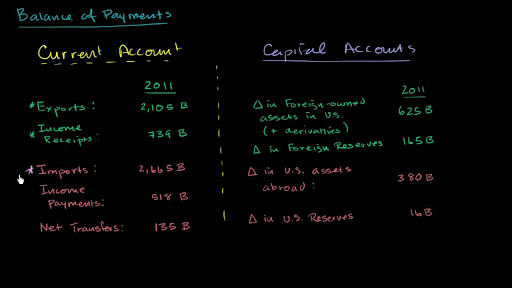 Balance of Payments
Current Account
2011
* Exports: 2,105 B
* Income
Receipts: 739 B
* Imports: 2,665 B
Income
Payments: 518 B
Net Transfers: 135 B
Capital Accounts
2011
Δ in Foreign-owned
assets in U.S. 625 B
(+ derivatives)
Δ in Foreign Reserves 165 B
Δ in U.S. assets
abroad: 380 B
Δ in U.S. Reserves 16 B